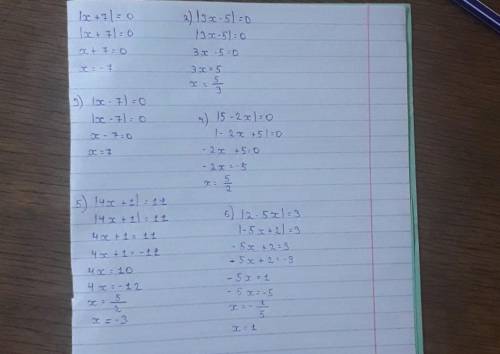 |x+7|=0
|x+7|=0
x+7=0
x=-7
2) |3x-5|=0
|3x-5|=0
3x-5=0
3x=5
x=5/3
3) |x-7|=0
|x-7|=0
x-7=0
x=7
4) |5-2x|=0
|-2x+5|=0
-2x+5=0
-2x=-5
x=5/2
5) |4x+1|=11
|4x+1|=11
4x+1=11
4x+1=-11
4x=10
4x=-12
x=5/2
x=-3
6) |2-5x|=3
|-5x+2|=3
-5x+2=3
-5x+2=-3
-5x=1
-5x=-5
x=-1/5
x=1